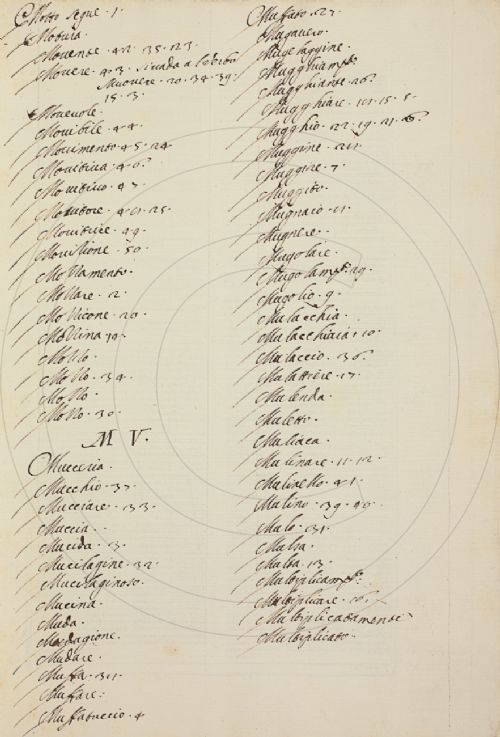 Motto segue · 1 ·
Motura ·
Movente · 42 · 35 · 123 ·
Movere · 43 ·
Muovere · 20 · 34 · 39 ·
15 · 3 ·
Movevole ·
Movibile · 44 ·
Movimento · 45 · 24
Movitiva · 46 ·
Movitivo · 47 ·
Movitore · 25 ·
Movitrice · 49 ·
Movizione · 50 ·
Mozzamento ·
Mozzare · 2 ·
Mozzicone · 20 ·
Mozzina 19 ·
Mozzo ·
Mozzo · 34 ·
Mozzo ·
Mozzo · 30 ·
M V ·
Mucceria ·
Mucchio · 37 ·
Mucciare · 133 ·
Muccia ·
Mucida · 3 ·
Mucilagine · 32 ·
Mucilaginoso ·
Mucina ·
Muda ·
Mudagione ·
Mudare ·
Muffa · 311 ·
Muffare ·
Muffatuccio · 4
Muffato · 27 ·
Mugavero ·
Mugelaggine ·
Mugghiamto ·
Mugghiante · 26 ·
Mugghiare · 5 ·
Mugghio · 22 · 19 · 21 · 26 ·
Muggine · 211 ·
Muggire · 7 ·
Muggito ·
Mugnaio · 11 ·
Mugnere ·
Mugolare ·
Mugolamto · 29 ·
Mugolio · 9 ·
Mulacchia ·
Mulacchiaia · 10 ·
Mulaccio · 36 ·
Mulattiere · 17 ·
Mulenda ·
Muletto ·
Muliaca ·
Mulinare · 11 · 12 ·
Mulinello · 41 ·
Mulino · 39 · 49 ·
Mulo · 31 ·
Mulsa ·
Multa · 13 ·
Multiplicamto ·
Multiplicare · 16 ·
Multiplicatamente
Multiplicato ·